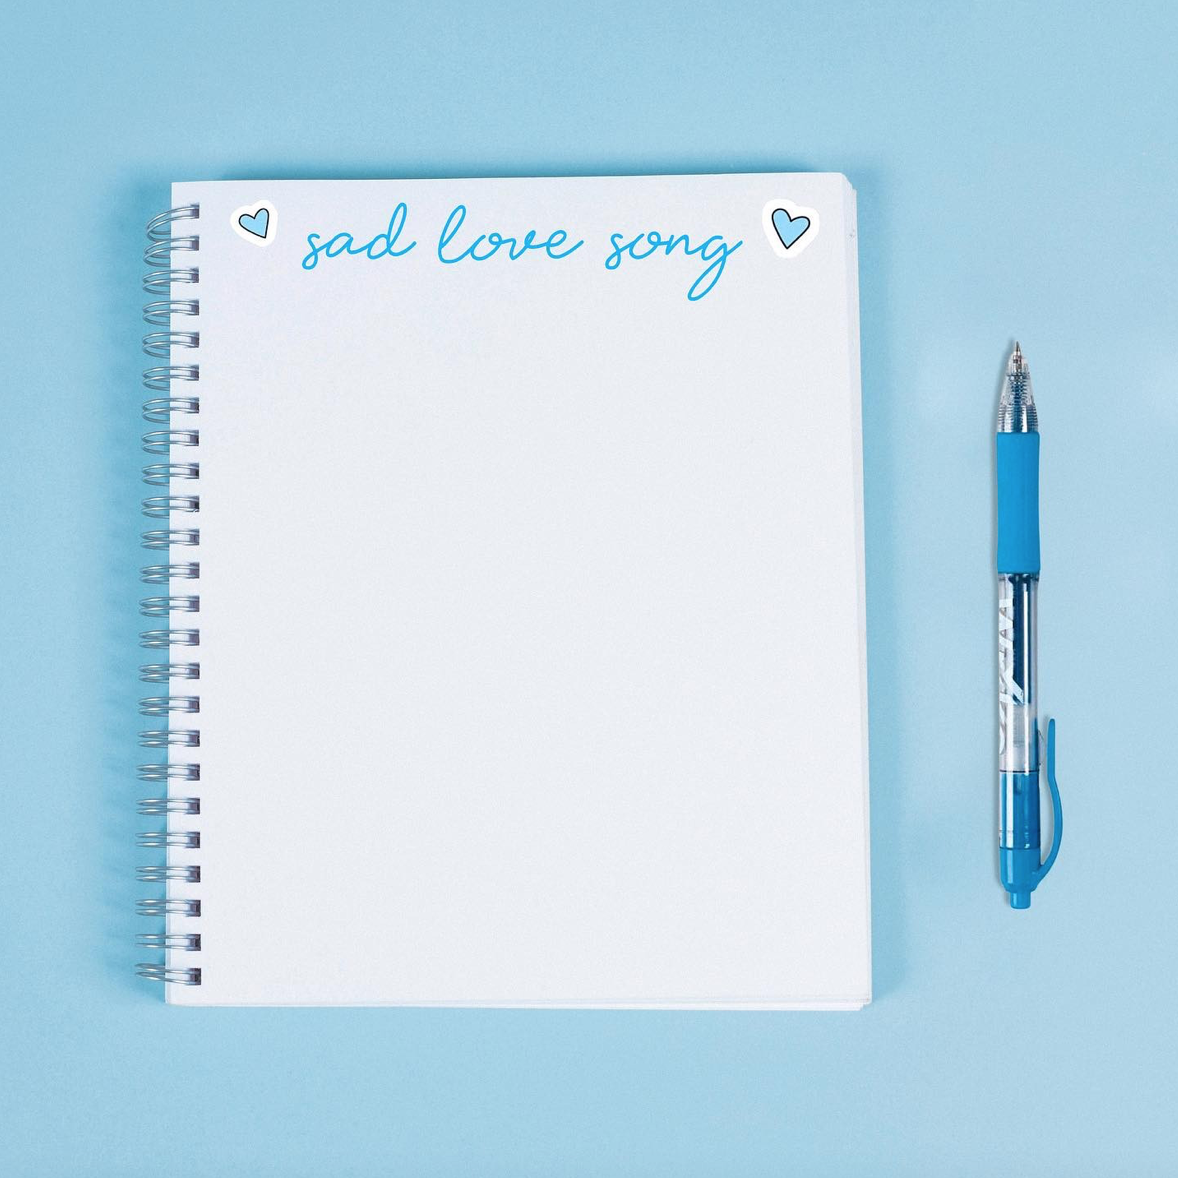 sad love song